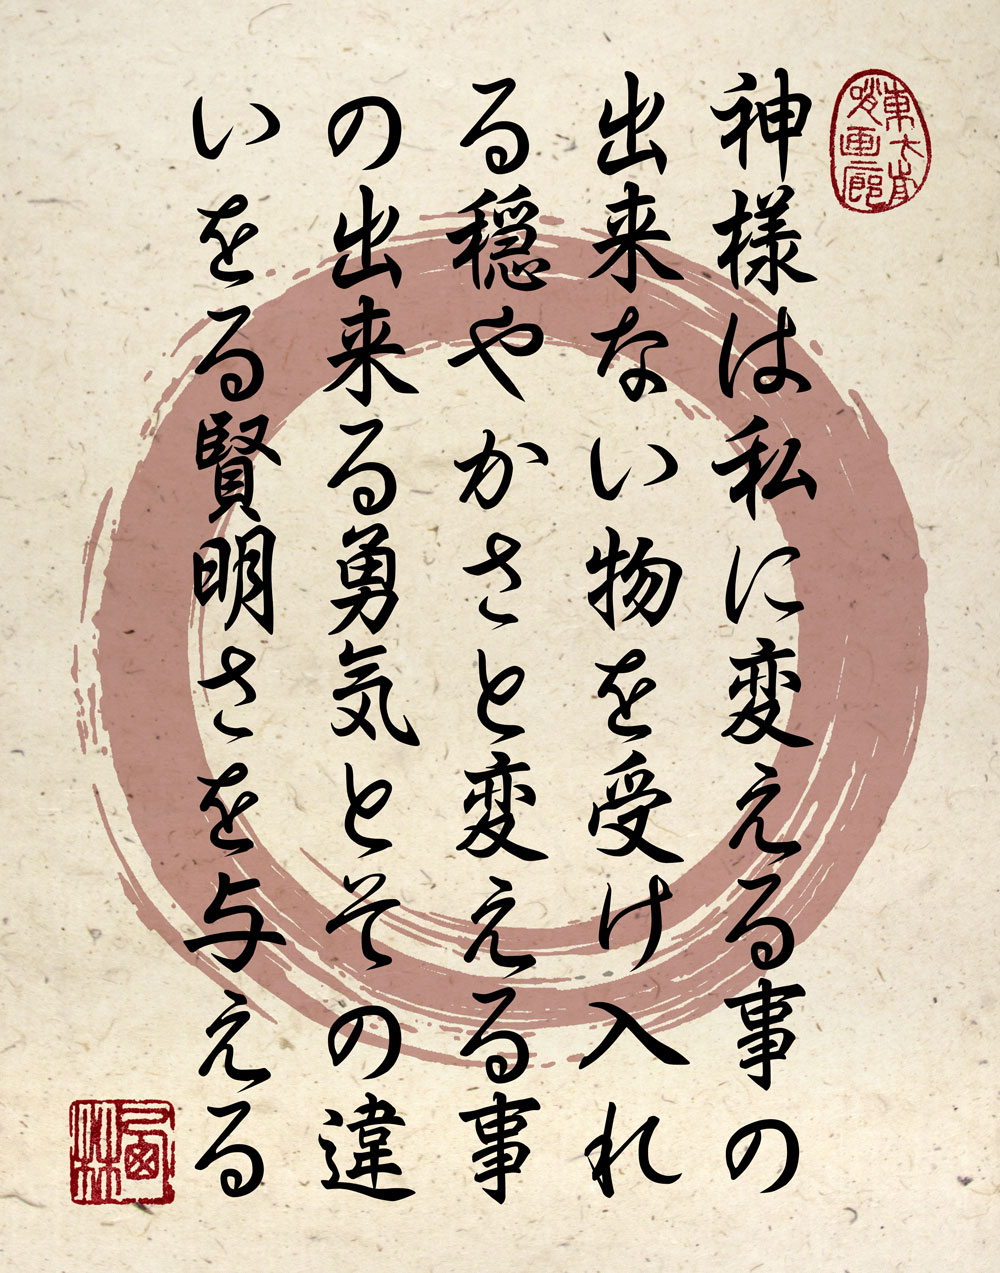 神様は私に変える事の
出来ない物を受け入れ
る穏やかさと変える事
の出来る勇気とその違
いをる賢明さを与える